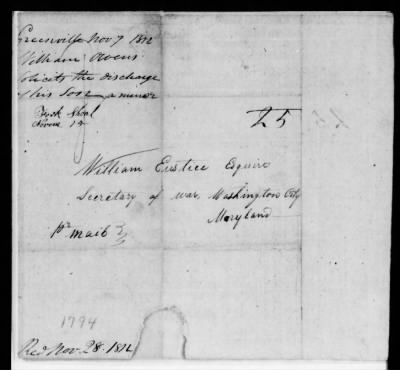 Greenville Nov 7 1812
William Owens
solicits the discharge
of his Son a minor
Novem 14
25
William Eustice Esquire
Secretary of war, Washington City
Maryland
pr. mail
1794
Recd Nov. 28. 1812